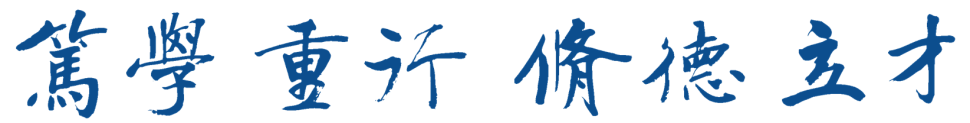 篤學 重行 脩德 立才